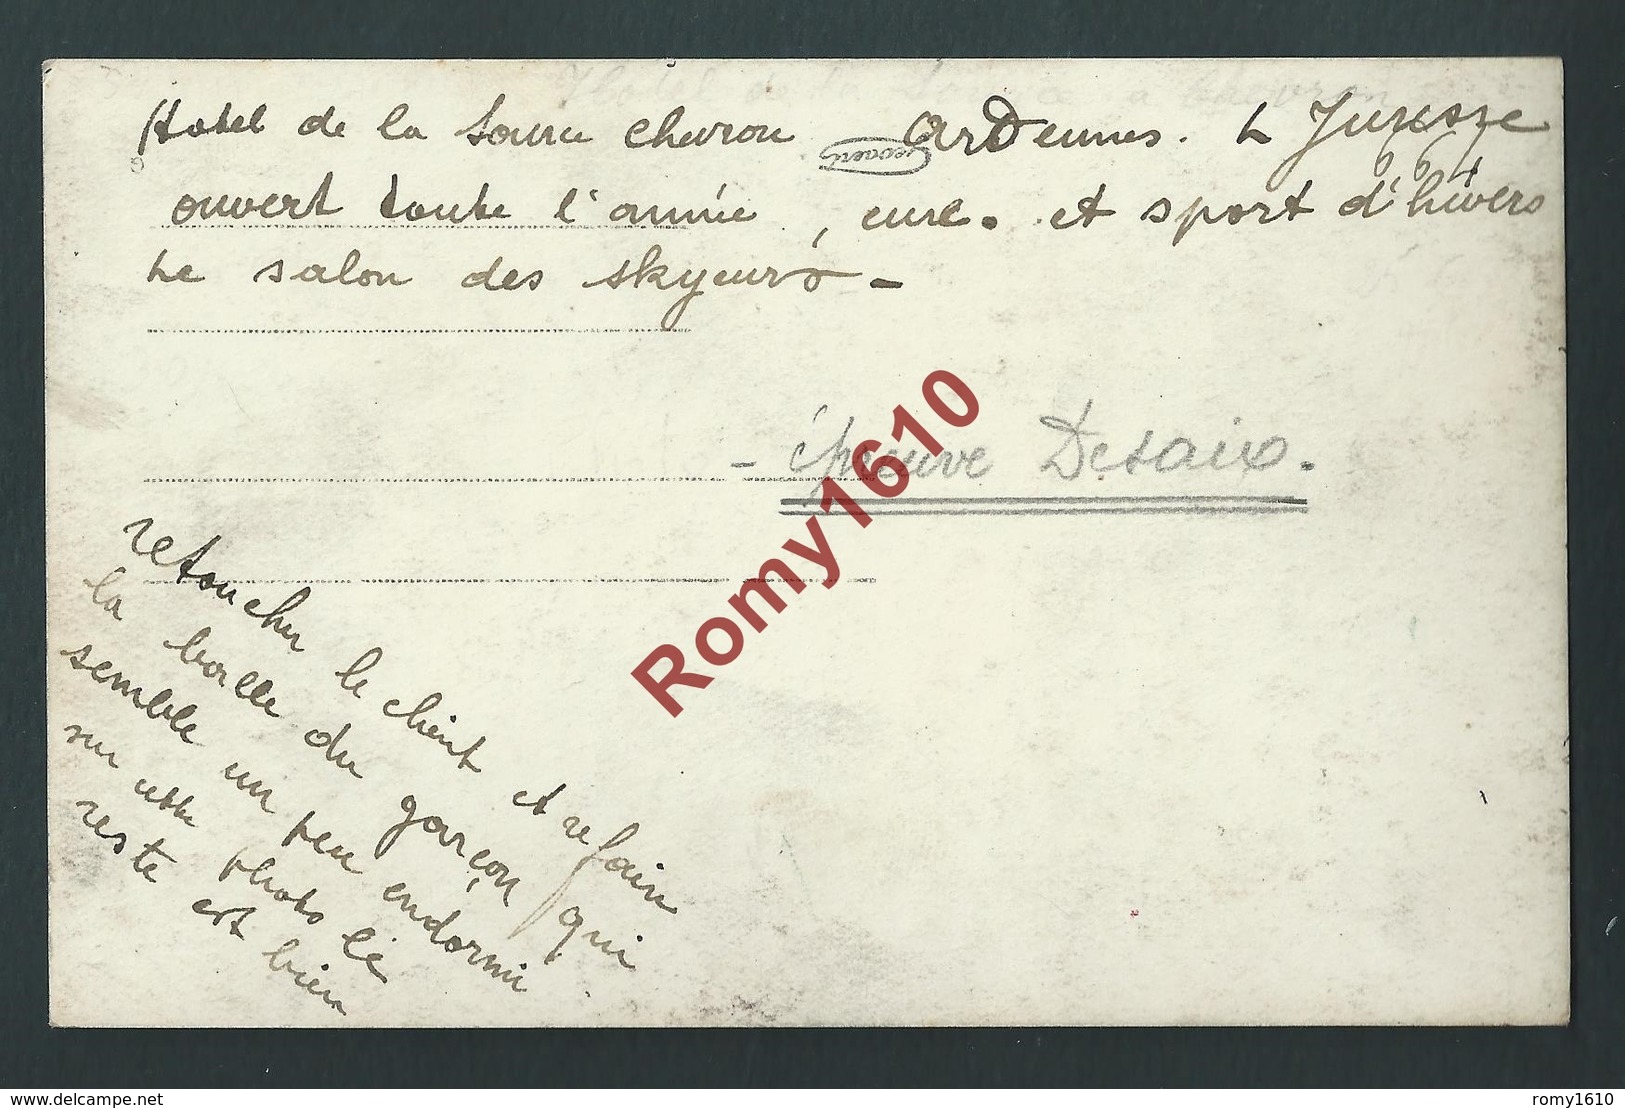 Hotel de la Source Chevron Ardennes.
ouvert toute l'année, cure. et sport d'hivers
Le salon des skyeurs -
- épreuve Desaix.
retoucher le client et refaire
la boule du garçon qui
semble un peu endormi
sur cette photo le
reste est bien
Romy1610
delcampe.net
romy1610